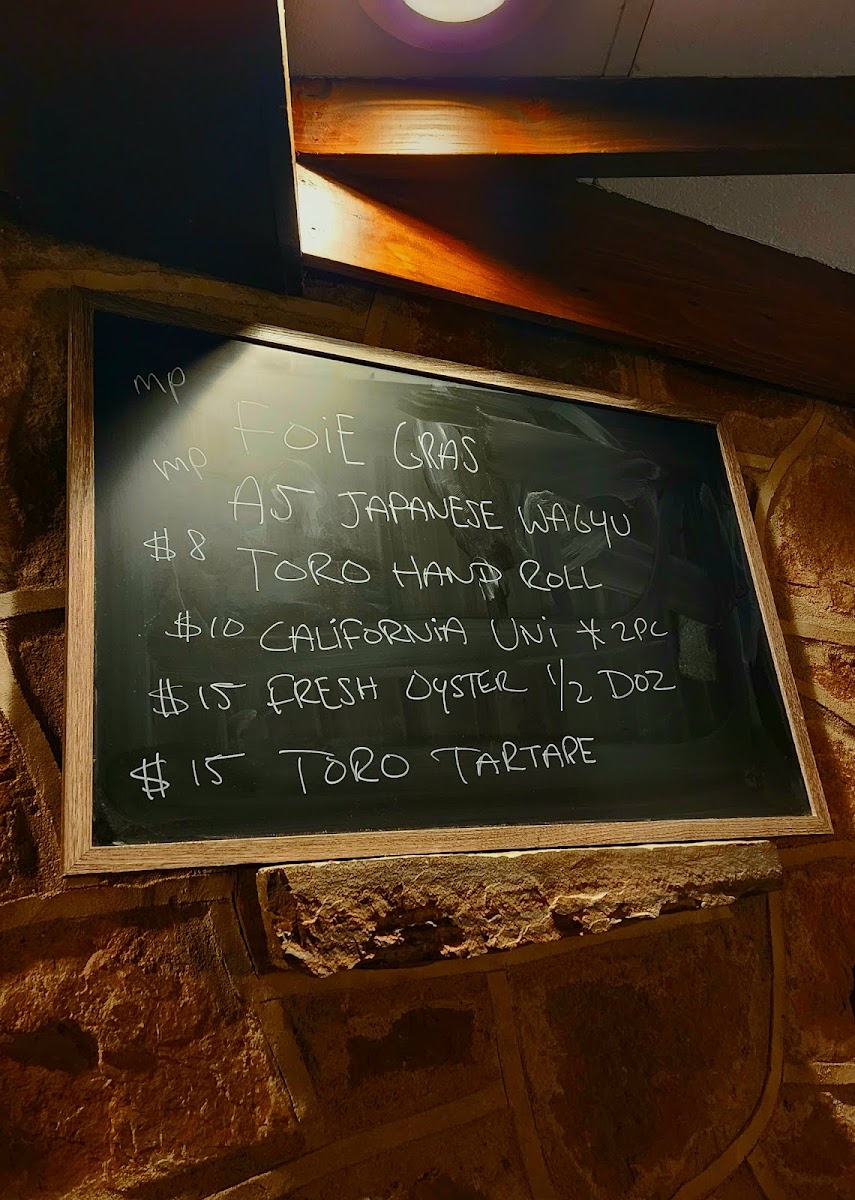 mp FOiE GRAS
mp A5 JAPANESE WAGYU
$8 TORO HAND ROLL
$10 CALiFORNiA UNi *2PC
$15 FRESH OYSTER 1/2 DOZ
$15 TORO TARTARE